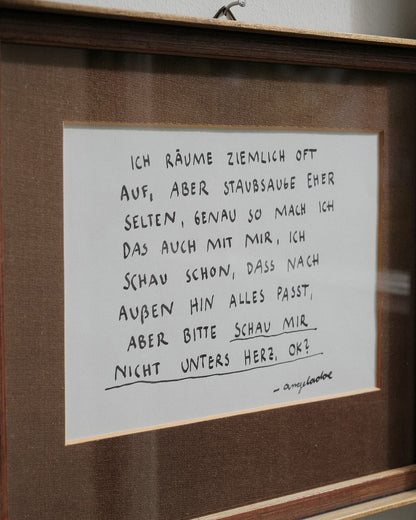 ICH RÄUME ZIEMLICH OFT
AUF, ABER STAUBSAUGE EHER
SELTEN, GENAU SO MACH ICH
DAS AUCH MIT MIR, ICH
SCHAU SCHON, DASS NACH
AUßEN HIN ALLES PASST,
ABER BITTE SCHAU MIR
NICHT UNTERS HERZ, OK?
- angeladoe